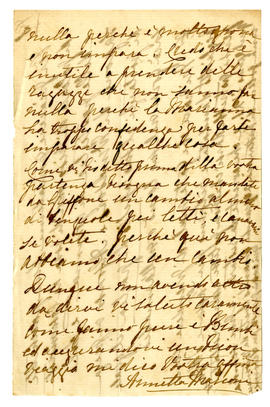 nulla perchè è molto
e non impara. Credo che è
inutile a prendere delle
ragazze che non sanno far
nulla perchè la Marianna
ha troppo confidenza per farle
imparare qualche cosa.
Come vi ho detto prima della vostra
partenza bisogna che mandiate
un cambio almeno
di lenzuole pei letti
se volete. Perchè quà non
abbiamo che un cambio.
Dunque non avendo altro
da dirvi vi saluto caramente
come fanno pure i Bimbi
ed augurandovi un buon
viaggio mi dico Vostra
Annetta